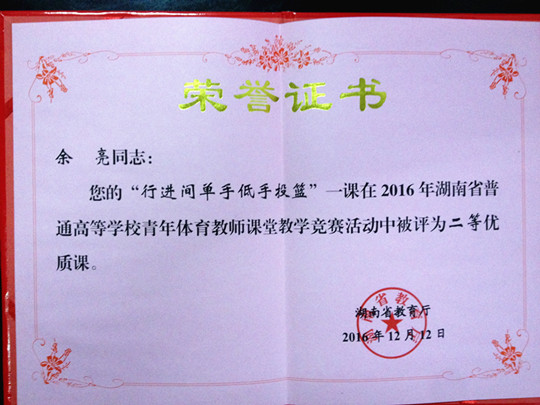 荣誉证书
余 亮同志：
您的“行进间单手低手投篮”一课在2016年湖南省普
通高等学校青年体育教师课堂教学竞赛活动中被评为二等优
质课。
湖南省教育厅
2016年12月12日